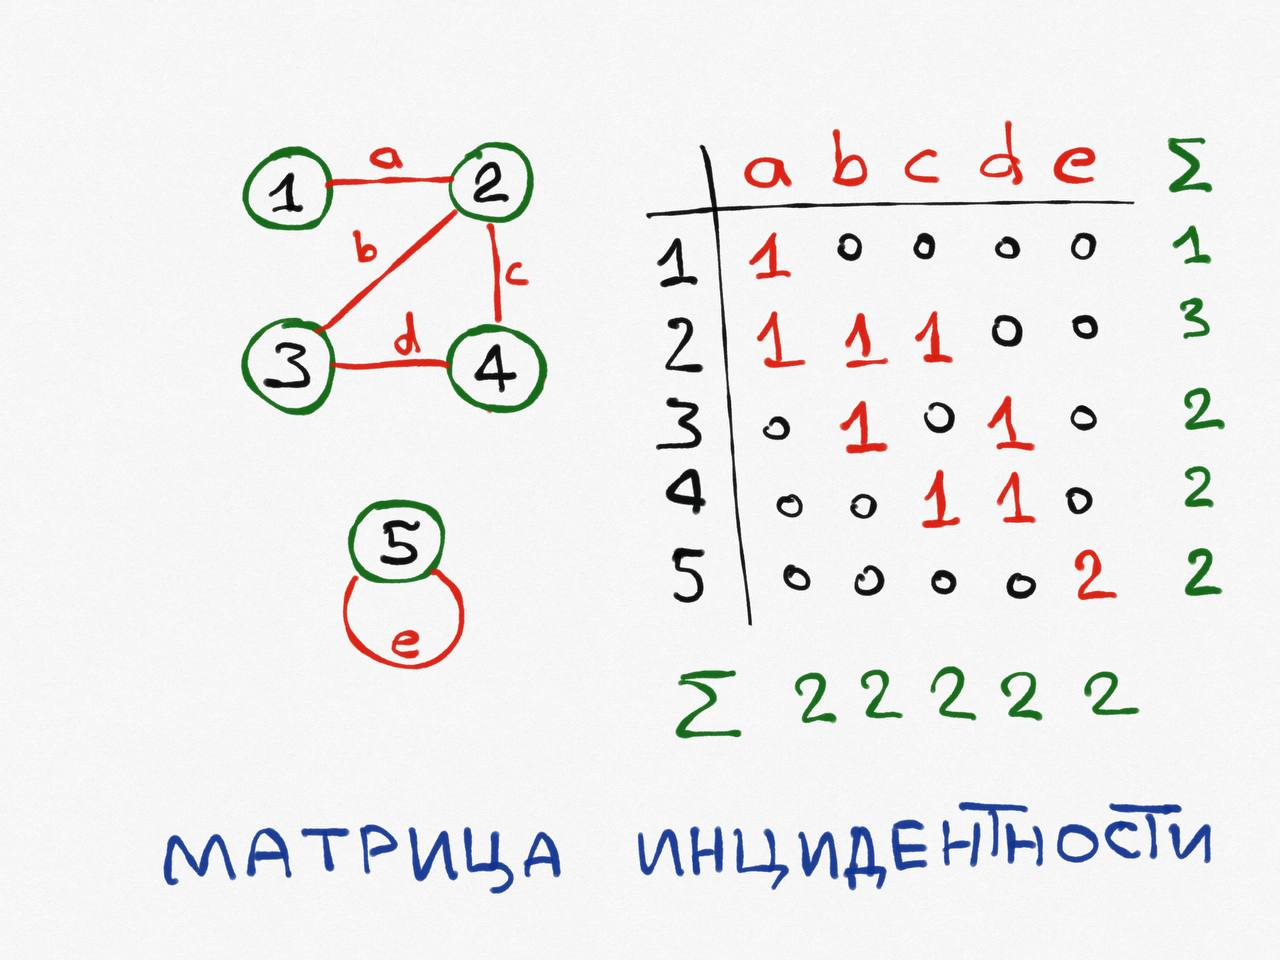 a
1 2
b c
d
3 4
5
e
a b c d e Σ
1 1 0 0 0 0 1
2 1 1 1 0 0 3
3 0 1 0 1 0 2
4 0 0 1 1 0 2
5 0 0 0 0 2 2
Σ 2 2 2 2 2
МАТРИЦА ИНЦИДЕНТНОСТИ